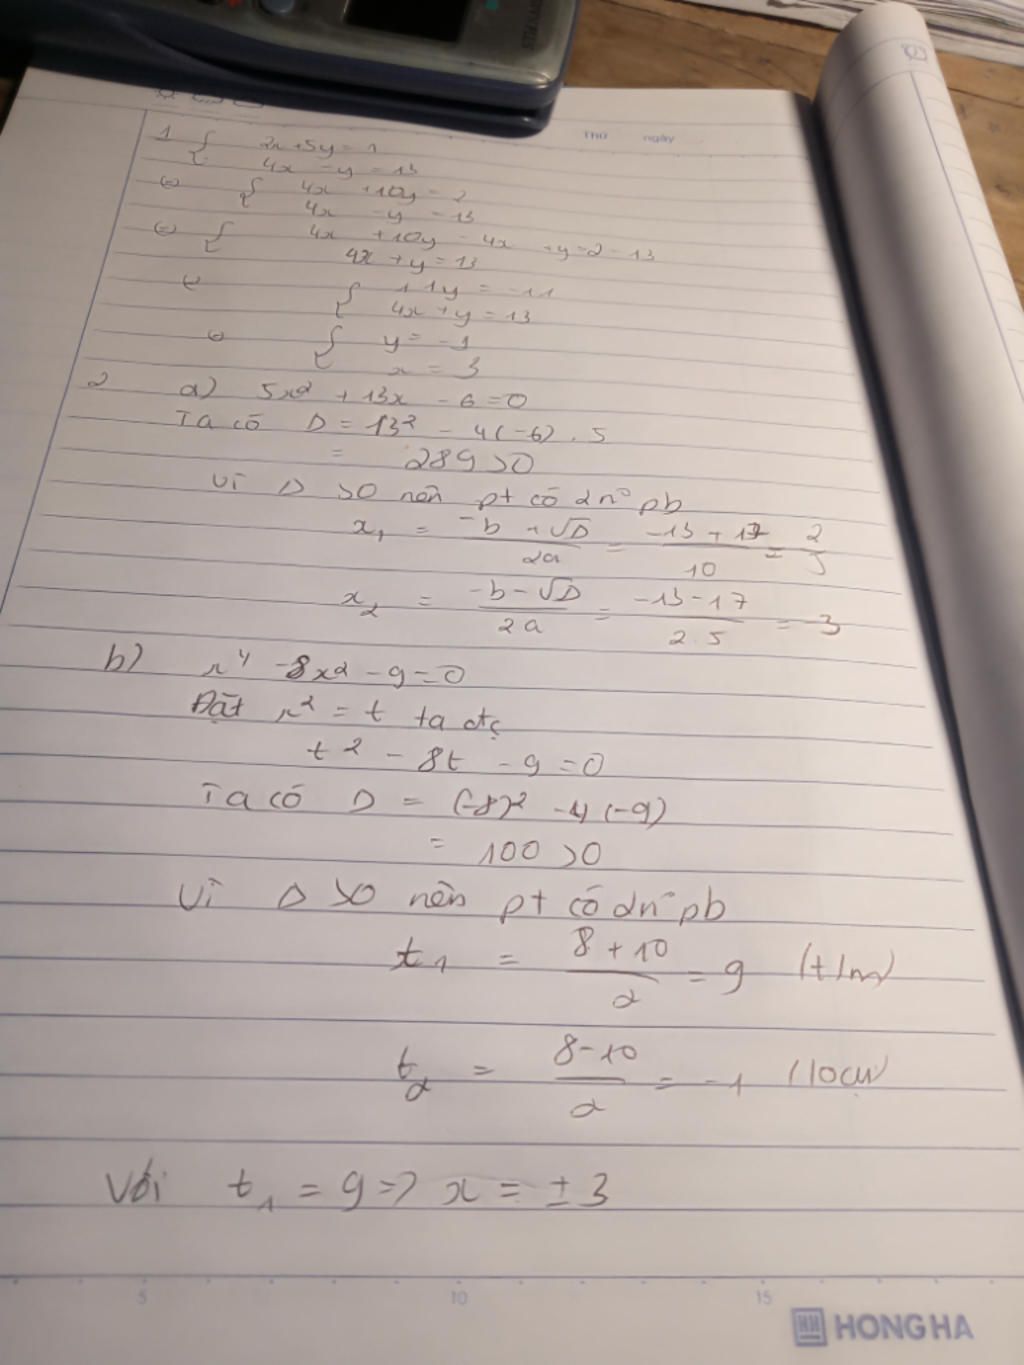 Thứ ngày
1 { 2x + 5y = 1
4x - y = 13
⇔ { 4x + 10y = 2
4x - y = 13
⇔ { 4x + 10y - 4x + y = 2 - 13
4x + y = 13
⇔ { 11y = -11
4x + y = 13
⇔ { y = -1
x = 3
2 a) 5x² + 13x - 6 = 0
Ta có Δ = 13² - 4(-6).5
= 289 > 0
Vì Δ > 0 nên pt có 2n⁰ pb
x₁ = (-b + √Δ)/2a = (-13 + 17)/10 = 2/5
x₂ = (-b - √Δ)/2a = (-13 - 17)/2.5 = -3
b) x⁴ - 8x² - 9 = 0
Đặt x² = t ta đc
t² - 8t - 9 = 0
Ta có Δ = (-8)² - 4(-9)
= 100 > 0
Vì Δ > 0 nên pt có 2n⁰ pb
t₁ = (8 + 10)/2 = 9 (t/m)
t₂ = (8 - 10)/2 = -1 (loại)
Với t₁ = 9 => x = ± 3
5 10 15
HONG HA